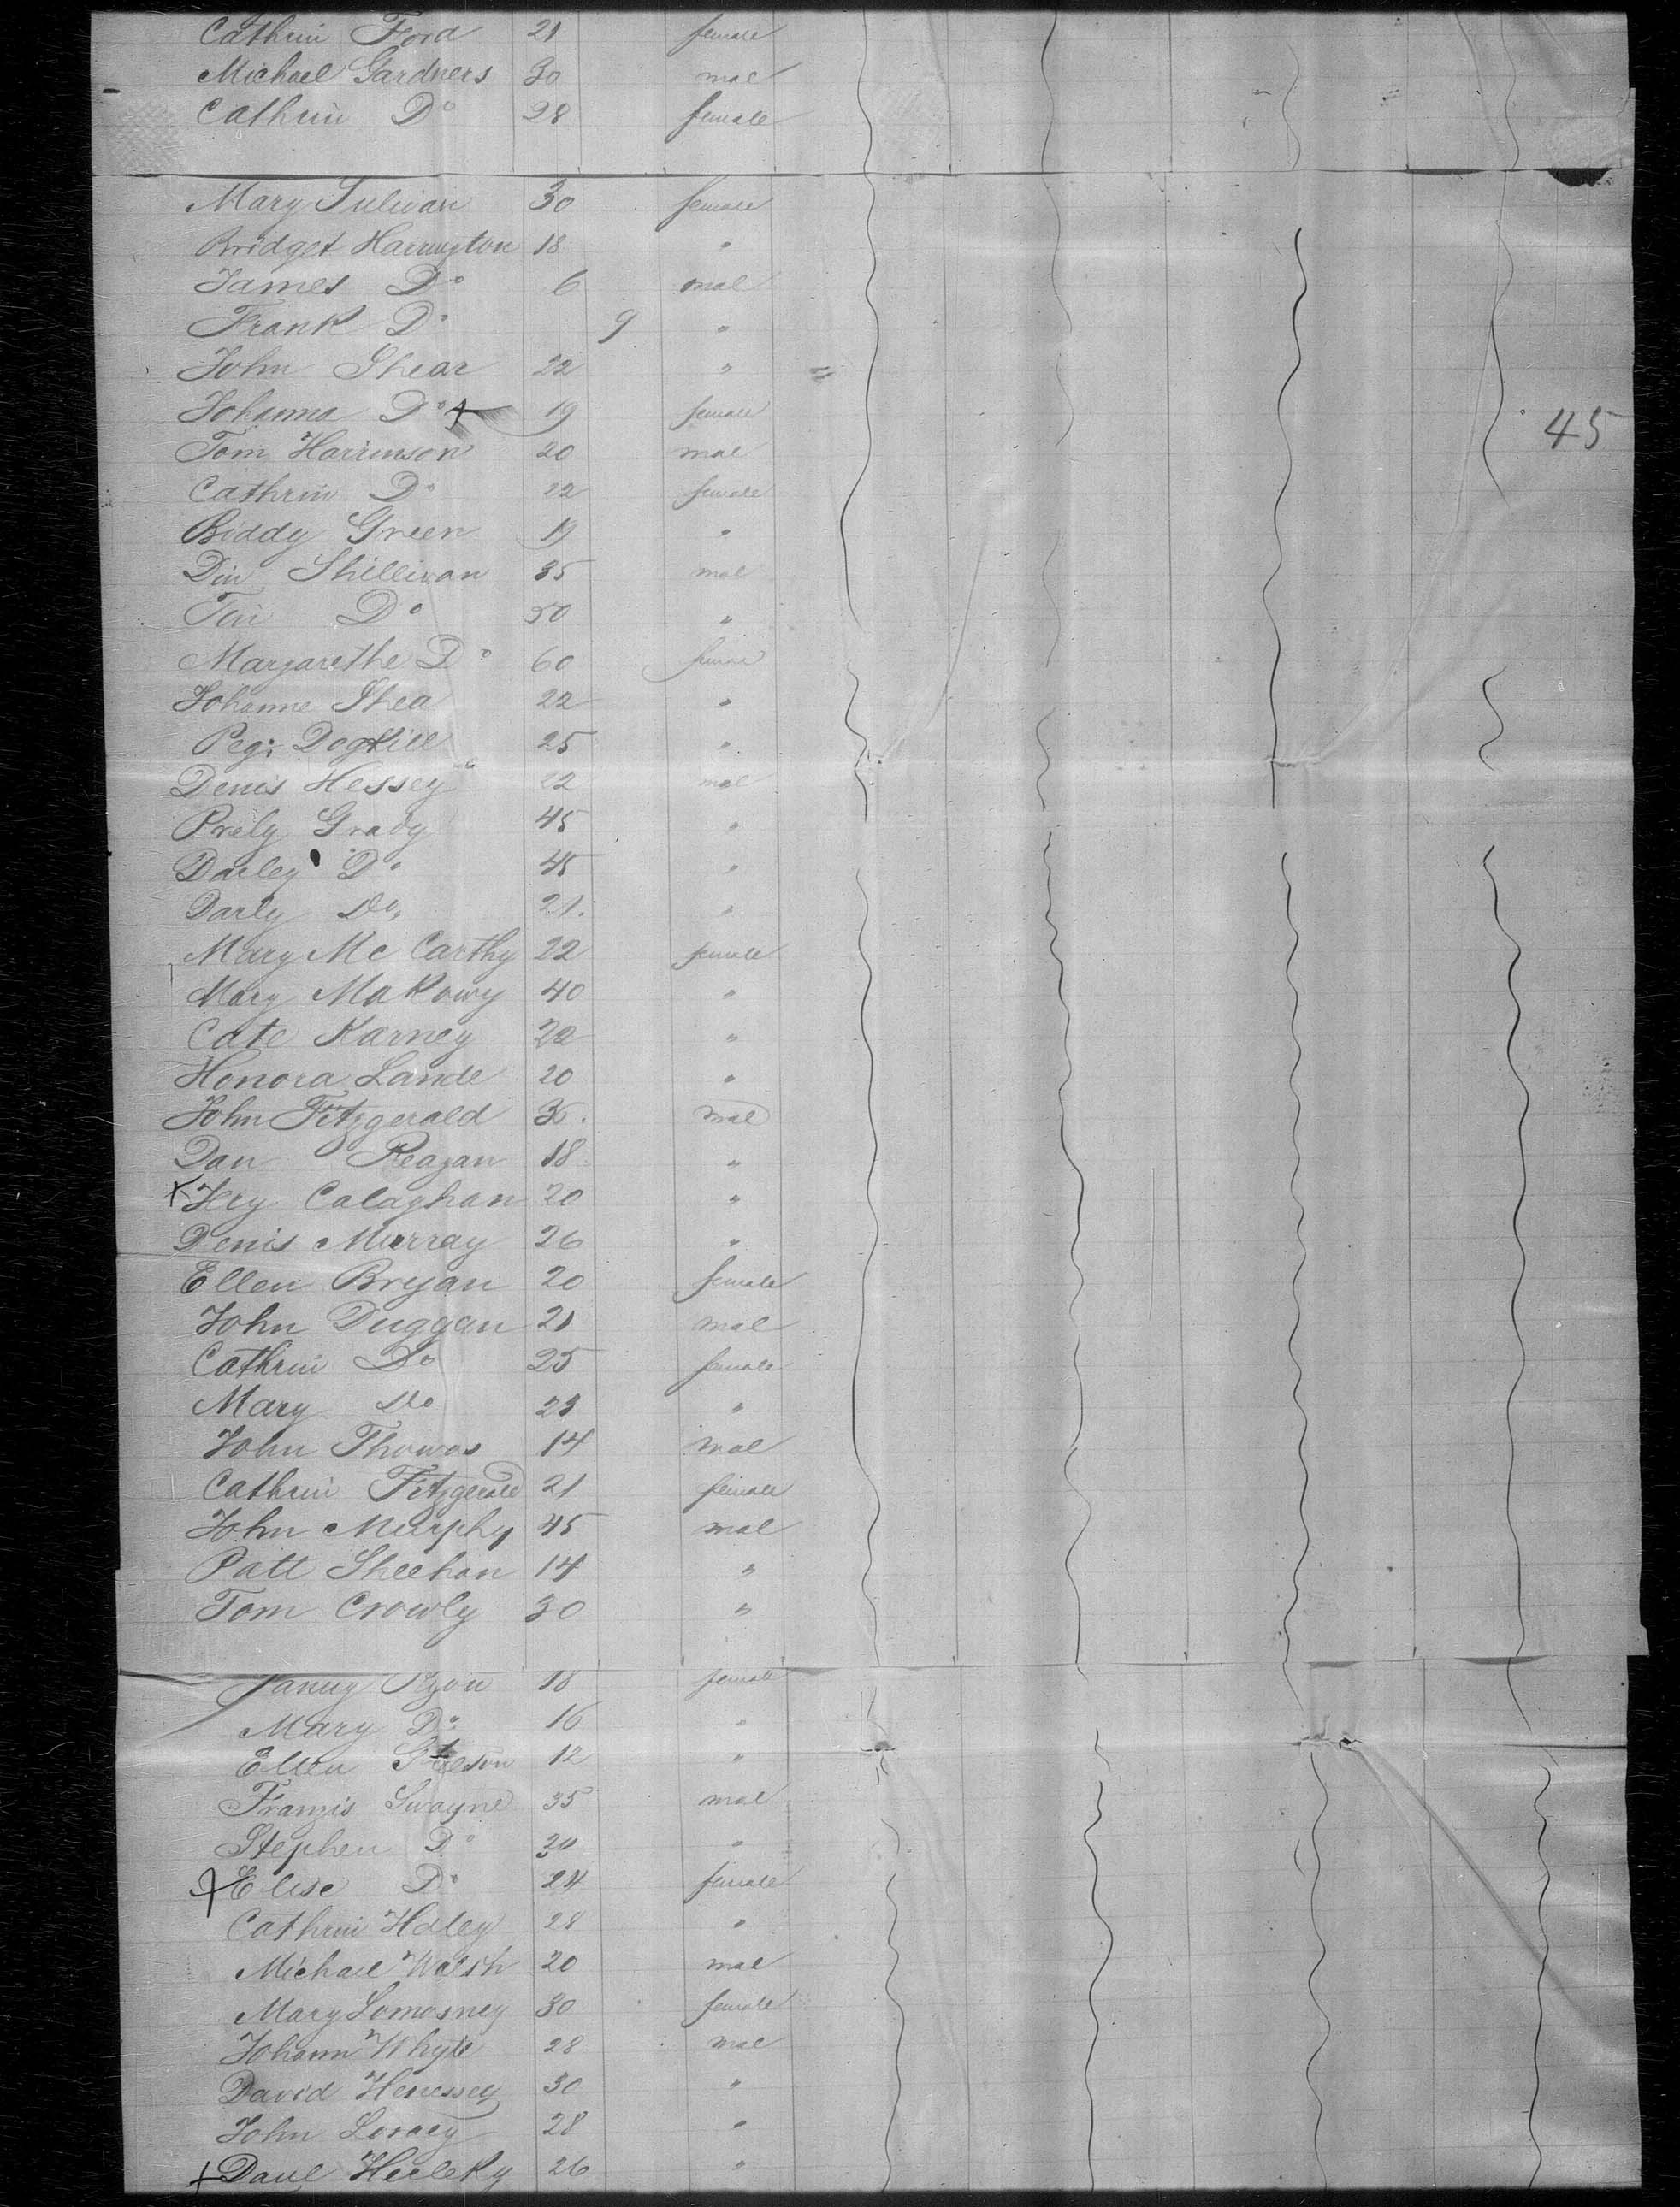 Cathrin Ford 21 female
Michael Gardners 30 mal
Cathrin Do 28 female
Mary Sulivan 30 female
Bridget Harrington 18 "
James Do 6 mal
Frank Do 9 "
John Shear 22 "
Johanna Do 19 female
Tom Harrinson 20 mal
45
Cathrin Do 22 female
Biddy Green 19 "
Din Shillivan 35 mal
Do 50 "
Margarethe Do 60
Johanne Shea 22 "
Pegi 25 "
Denis Hessey 22 mal
Grady 45 "
Darley Do 45 "
Darly Do, 21. "
Mary Mc Carthy 22 female
Mary 40 "
Cate Karney "
Honora Lande 20 "
John Fitzgerald mal
Dan Reagan 18 "
Calaghan 20 "
Denis Murray 26 "
Ellen Bryan 20 female
John Duggan 21 mal
Cathrin Do 25 female
Mary Do "
John Thomas 14 mal
Cathrin Fitzgerald 21 female
John Murphy 45 mal
Patt Sheehan 14 "
Tom Crowly 30 "
18 female
Mary Do 16 "
Ellen 12 "
Franzis Swayne 35 mal
Stephen Do "
Elise Do 24 female
Cathrin Haley 28 "
Michael Walsh 20 mal
Mary Lomasney 30 female
Johann Whyte 28 mal
David Henessey 30 "
John 28 "
26 "